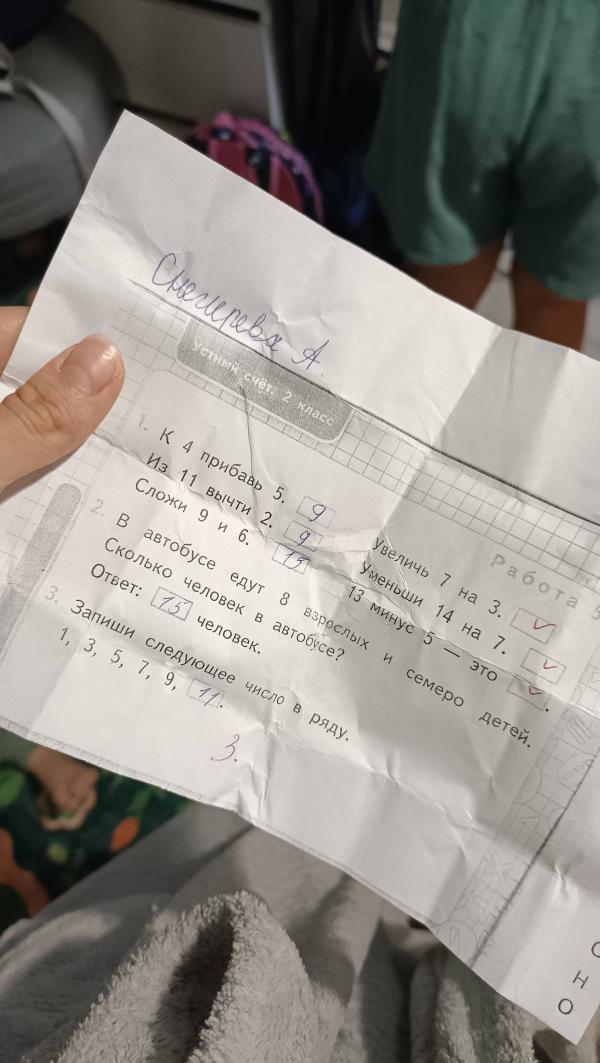 Снегирева А.
Устный счёт. 2 класс
Работа 5
1. К 4 прибавь 5. 9 Увеличь 7 на 3.
Из 11 вычти 2. 9 Уменьши 14 на 7.
Сложи 9 и 6. 15 13 минус 5 — это .
2. В автобусе едут 8 взрослых и семеро детей.
Сколько человек в автобусе?
Ответ: 15 человек.
3. Запиши следующее число в ряду.
1, 3, 5, 7, 9, 11.
3.
С
Н
О